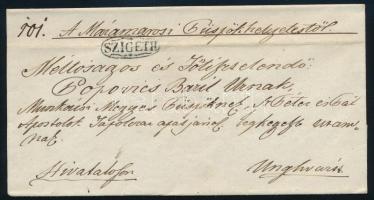 701. A Máramarosi Püspökhelyettestől.
SZIGETH
Méltóságos és Főtisztelendő
Popovics Bazil Urnak,
Munkácsi Megyés Püspöknek, Sz Péter és Pál
Apostol. Tápolcai apátjának legkegyesb uram-
nak
Hivatalból
Unghvárit